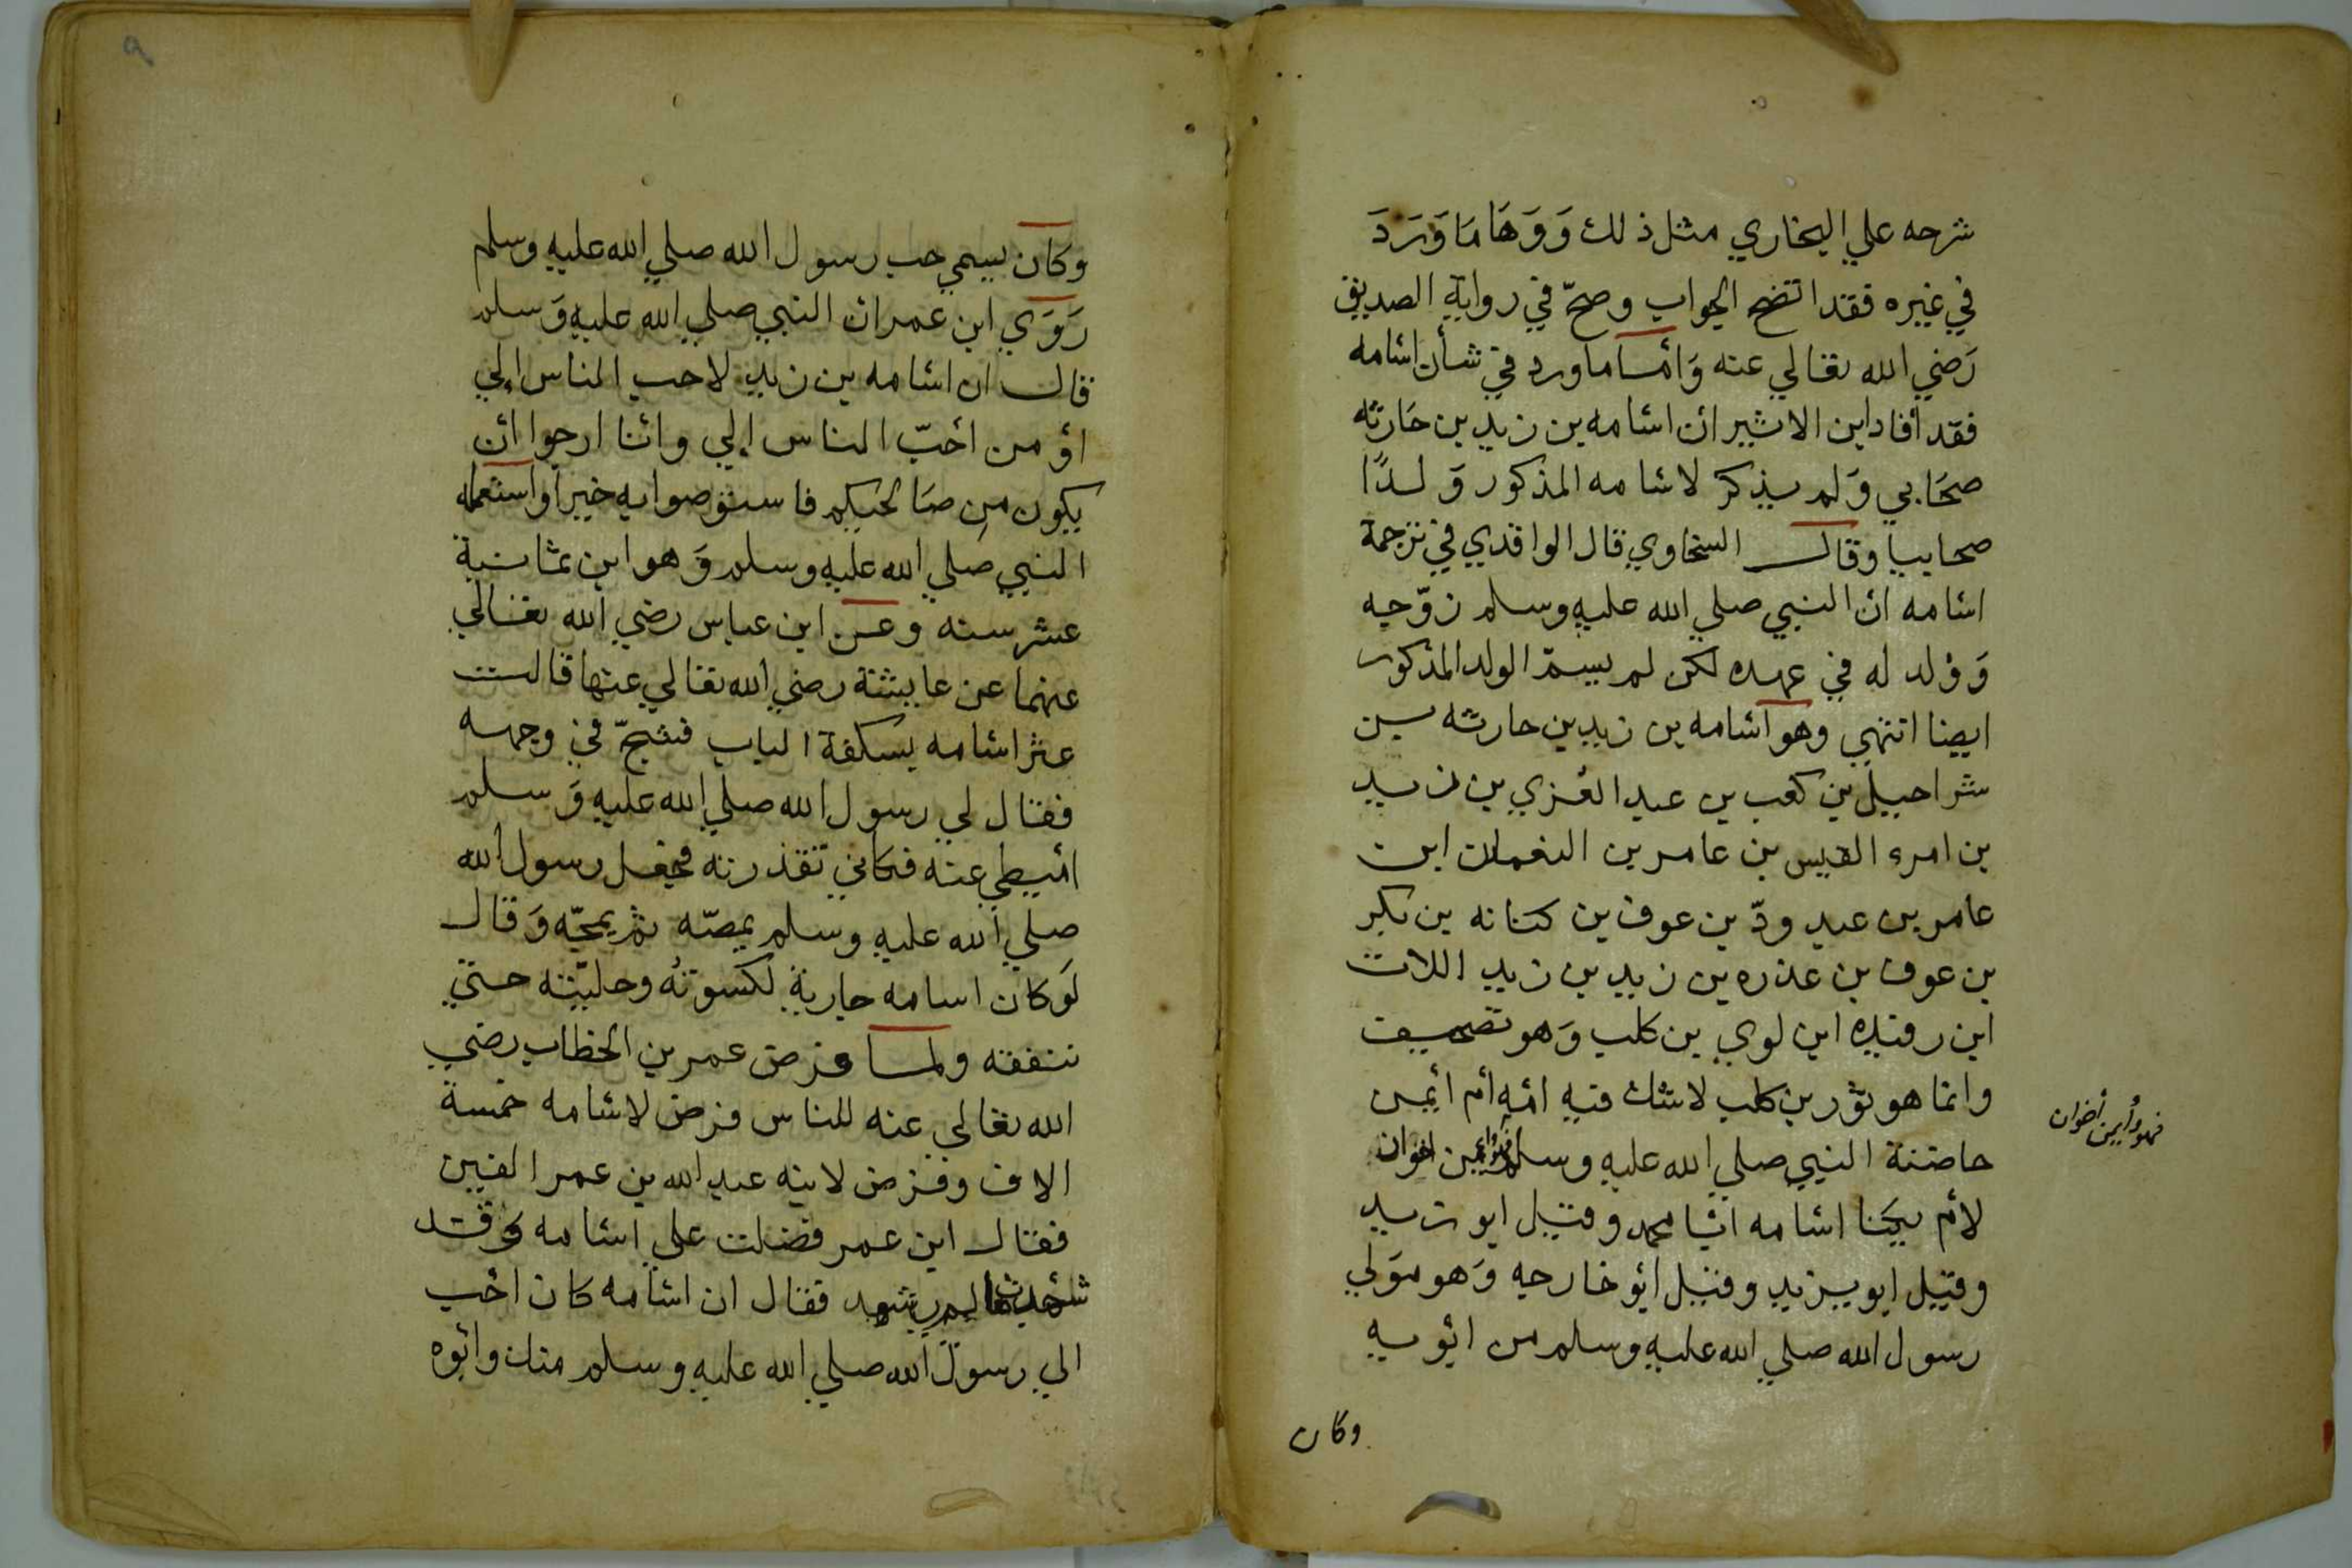 شرحه علي البخاري مثل ذلك وَوَهَا مَا وَرَدَ
في غيره فقد اتضح الجواب وصحّ في رواية الصديق
رَضي الله تعالي عنه وَأمّا ما ورد في شأن اسامه
فقد أفاد ابن الاثير ان اسامه بن زيد بن حَارثه
صحَابي وَلم يذكر لاسامه المذكور وَلدًا
صحابيا وقال السخاوي قال الواقدي في ترجمة
اسامه ان النبي صلي الله عليه وسلم زوّجه
وَوُلد له في عهده لكن لم يسمّ الولد المذكور
ايضا انتهي وهو اسامه بن زيد بن حارثه بن
شراحبيل بن كعب بن عبد العُزي بن زيد
بن امرء القيس بن عامر بن النعمان ابن
عامر بن عبد ودّ بن عوف بن كنانه بن بكر
بن عوف بن عذره بن زيد بن زيد اللات
ابن رفيده ابن لوي بن كلب وَهو تصحيف
وانما هو ثور بن كلب لاشك فيه امّه أم أيمن
حاضنة النبي صلي الله عليه وسلم فهو وايمن اخوان
فهو وأيمن أخوان
لأم يكنا اسامه ابا محمد وقيل ابو زيد
وقيل ابو يزيد وقيل أبو خارجه وَهو مَولي
رسول الله صلي الله عليه وسلم من ابويه
وكان
وكان يسمي حب رسول الله صلي الله عليه وسلم
رَوَي ابن عمر ان النبي صلي الله عليه وَسلم
قال ان اسامه بن زيد لاحب الناس إلي
أو من أحبّ الناس إلي وانا ارجوا ان
يكون من صَالحيكم فاستوصوا به خيرا واستعمله
النبي صلي الله عليه وسلم وَهو ابن ثمانية
عشر سنه وعن ابن عباس رضي الله تعالي
عنهما عن عايشة رضي الله تعالي عنها قالت
عثر اسامه بسكفة الباب فشجّ في وجهه
فقال لي رسول الله صلي الله عليه وَسلم
أميطي عنه فكاني تقذرته فجعل رسول الله
صلي الله عليه وسلم يمصّه ثم يمجّه وَقال
لَو كان اسامه جارية لكسوتُه وحليّته حتي
ننفقه ولما فرض عمر بن الخطاب رضي
الله تعالي عنه للناس فرض لاسامه خمسة
الاف وفرض لابنه عبد الله بن عمر الفين
فقال ابن عمر فضلت علي اسامه وَقد
شهدت ما لم يشهد فقال ان اسامه كان أحب
الي رسول الله صلي الله عليه وسلم منك وأبوه